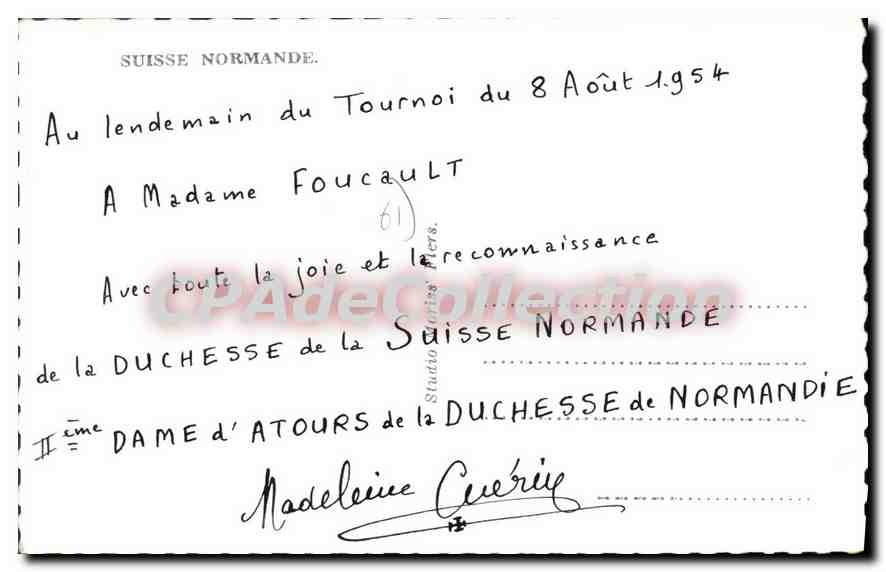 SUISSE NORMANDE.
Au lendemain du Tournoi du 8 Août 1.954
A Madame FOUCAULT
61
Avec toute la joie et la reconnaissance
de la DUCHESSE de la SUISSE NORMANDE
IIème DAME d'ATOURS de la DUCHESSE de NORMANDIE
Madeleine Guérin
Studio Flers.
CPAdeCollection